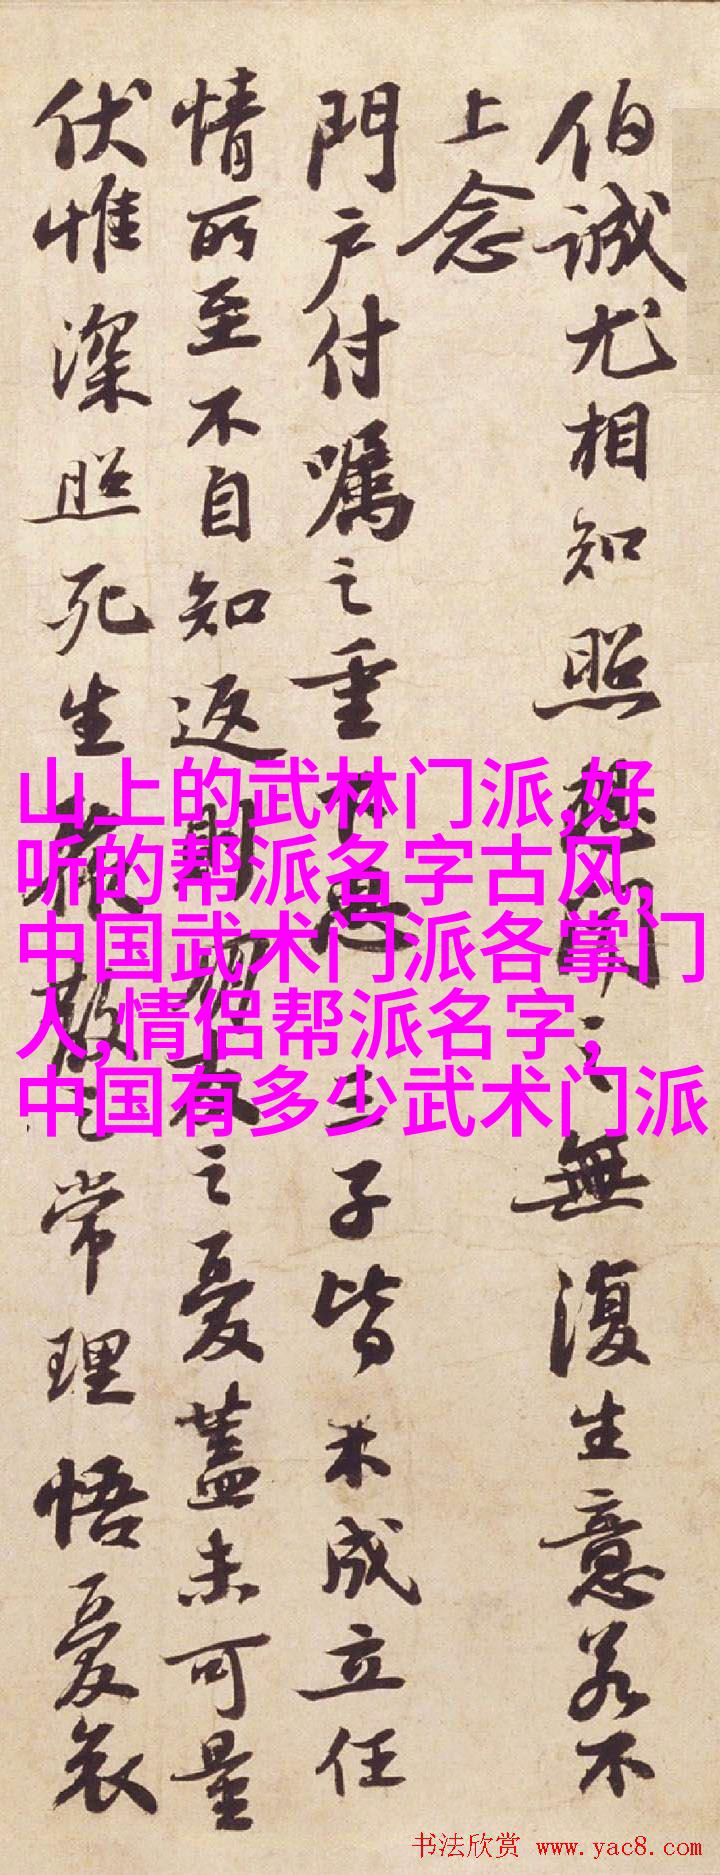 伯誠尤相知照想聞之無復生意若不
上念
門户付囑之重下思三子皆未成立任
情所至不自知返則朋友之憂蓋未可量
伏惟深照死生聚散之常理悟憂哀
山上的武林门派,好
听的帮派名字古风,
中国武术门派各掌门
人,情侣帮派名字,
中国有多少武术门派
书法欣赏 www.yac8.com